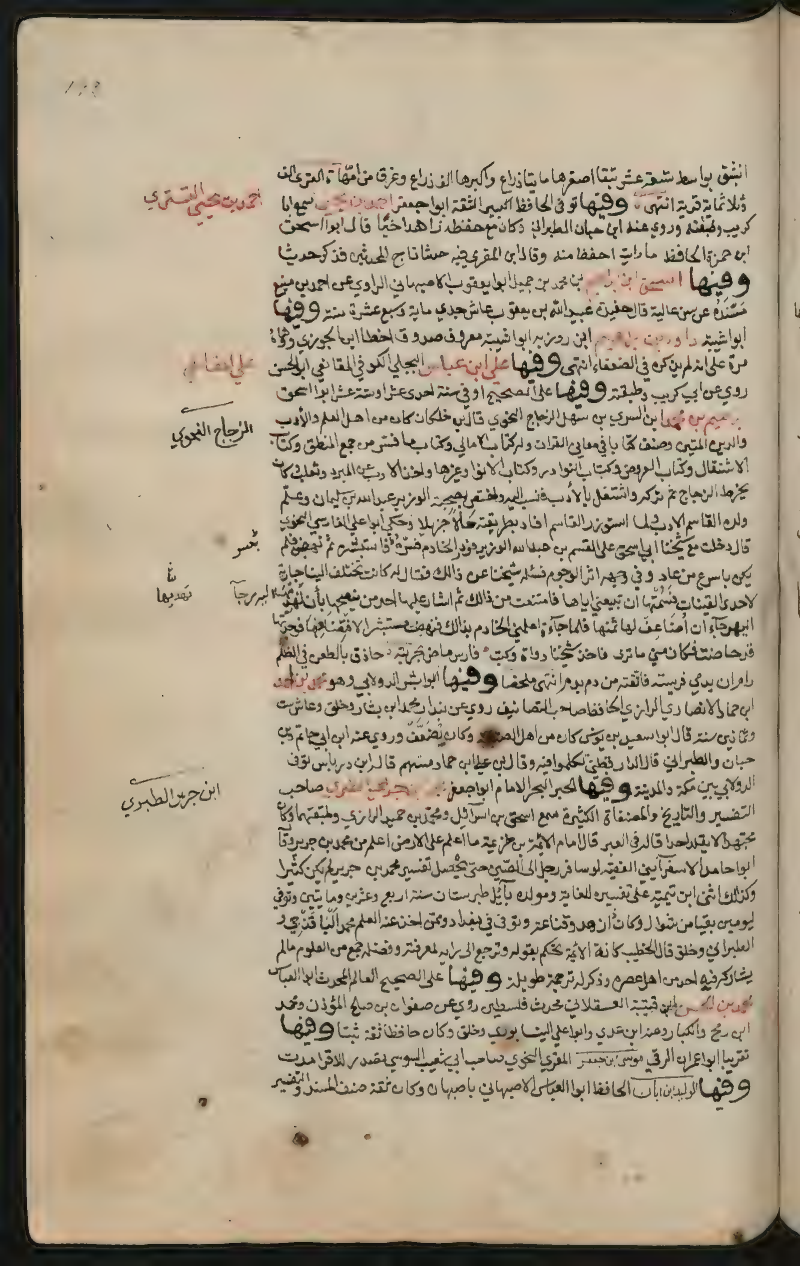 انبثق بواسط سبعة عشر بثقا اصغرها مايتا ذراع واكبرها الف ذراع وغرق من امهاة القرى الف
وثلاثماية قرية انتهى وفيها توفي الحافظ الكبير الثقة ابو جعفر احمد بن يحيى سمع ابا
كريب وطبقته وروي عنه ابن حبان الطبراني وكان مع حفظه زاهدا خيرا قال ابوا اسحق
ابن حمزة الحافظ ما رايت احفظ منه وقال ابن المقري فيه حدثنا تاج المحدثين فذكر حديثا
وفيها اسحق ابن ابراهيم بن محمد بن جميل ابوا يعقوب الاصبهاني الراوي عن احمد بن منيع
مسنده عن سن عالية قال حفيده عبيد الله بن يعقوب عاش جدي ماية وسبع عشرة سنة وفيها
ابوا شيبة داود بن ابراهيم ابن روزبه ابوا شيبة معروف صدوق اخطا ابن الجوزي وهاه
مرة على انه لم يذكره في الضعفاء انتهى وفيها علي ابن عباس البجلي الكوفي المقانعي ابوا الحسن
روي عن ابي كريب وطبقته وفيها على الصحيح او في سنة احدى عشر او ستة عشر ابوا اسحق
ابرهيم بن محمد ابن السري بن سهل الزجاج النحوي قال بن خلكان كان من اهل العلم والأدب
والدين المتين وصنف كتابا في معاني القران وله كتاب الامالي وكتاب ما فسر من جمع المنطق وكتاب
الاشتقال وكتاب العروض وكتاب النوادر وكتاب الانوا وغيرها واخذ الادب عن المبرد وثعلب كان
يخرط الزجاج ثم تركه واشتغل بالأدب فنسب اليه واختص بصحبة الوزير عبيد الله بن سليمان وعلم
ولده القاسم الادب فلما استوزر القاسم افاد بطريقته مالا جزيلا وحكى ابوا علي الفارسي النحوي
قال دخلت مع شيخنا ابي اسحق على القسم بن عبد الله الوزير فورد الخادم فسره فاستبشر ثم نهض فلم
يكن باسرع من عاد وفي وجهه اثر الوجوم فساله شيخنا عن ذالك فقال له كانت تختلف الينا جارية
لاحدى القينات فسمتها ان تبيعني اياها فامتنعت من ذالك ثم اشار عليها احد من ينصحها بأن تهديها
الي رجاء ان أضاعف لها ثمنها فلما جاءة اعلمني الخادم بذالك فنهضت مستبشرا لافتضاضها فوجدتها
قد حاضت فكان مني ما ترى فاخذ شيخنا دواة وكتب فارس ماض بحربته حاذق بالطعن في الظلم
رام ان يدمي فريسته فاتقته من دم بدم انتهى ملخصا وفيها ابوا بشر الدولابي وهو محمد بن احمد
ابن حماد الانصاري الرازي الحافظ صاحب التصانيف روي عن بندار محمد ابن بشار وخلق وعاش ست
وثمانين سنة قال ابوا سعيد بن يونس كان من اهل الصنعة وكان يضعف وروي عنه ابن ابي حاتم وبن
حبان والطبراني قال الدارقطني تكلموا فيه وقال بن عدي ابن حماد متهم قال ابن درباس توفي
الدولابي بين مكة والمدينة وفيها الحبر البحر الامام ابوا جعفر محمد بن جرير الطبري صاحب
التفسير والتاريخ والمصنفاة الكثيرة سمع اسحق بن اسرائل ومحمد بن حميد الرازي وطبقتهما وكان
مجتهدا لا يقلد احدا قال في العبر قال امام الائمة بن خزيمة ما اعلم على الارض اعلم من محمد بن جرير وقال
ابوا حامد الاسفرآيني الفقيه لو سافر رجل الى الصين حتى يحصل تفسير محمد بن جرير لم يكن كثيرا
وكذالك اثنى ابن تيمية على تفسيره للغاية ومولده بآمل طبرستان سنة اربع وعشرين ومايتين وتوفي
ليومين بقيا من شوال وكان ذا زهد وقناعة وتوفي في بغداد وممن اخذ عنه العلم محمد الباقرحي و
الطبراني وخلق قال الخطيب كانة الائمة تحكم بقوله وترجع الى رايه لمعرفته وفضله جمع من العلوم مالم
يشاركه فيه احد من اهل عصره وذكر له ترجمة طويلة وفيها على الصحيح العالم المحدث ابوا العباس
محمد بن الحسن ابن قتيبة العسقلاني محدث فلسطين روي عن صفوان بن صالح المؤذن ومحمد
ابن رمح والكبار وعنه ابن عدي وابوا علي النيسابوري وخلق وكان حافظا ثقة ثبتا وفيها
تقريبا ابوا عمران الرقي موسى بن جرير المقري النحوي صاحب ابي شعيب السوسي تصدر للاقرا مدت
وفيها الوليد بن ابان الحافظ ابوا العباس الاصبهاني باصبهان وكان ثقة صنف المسند والتفسير
احمد بن يحيى التستري
علي المقانعي
الزجاج النحوي
ابن جرير الطبري